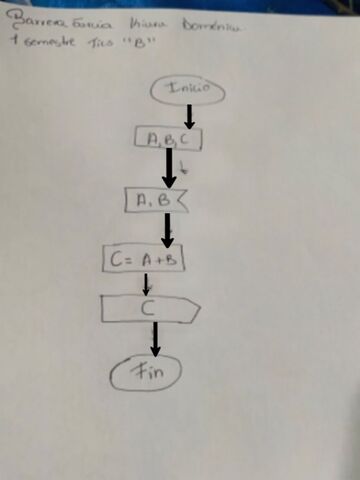 Barrera García Kiara Doménica
1 semestre Tics "B"
Inicio
A, B, C
A, B
C = A+B
C
Fin